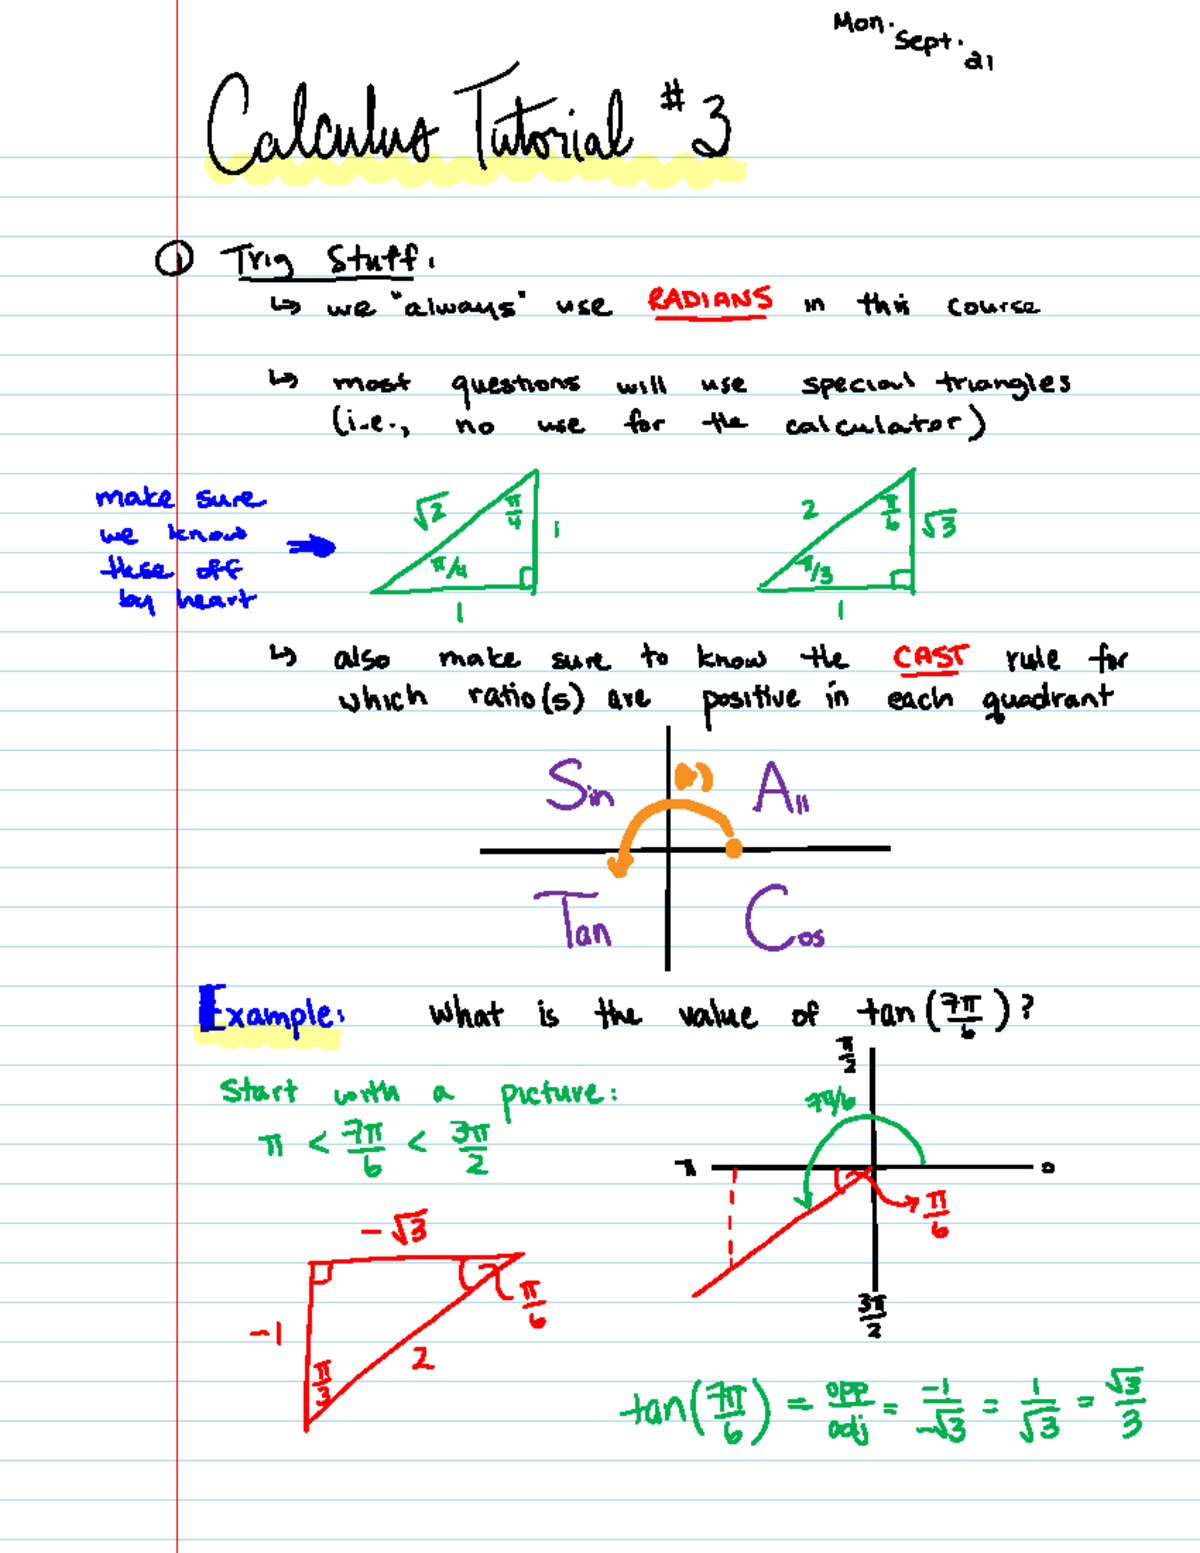 Mon. Sept. 21
Calculus Tutorial #3
① Trig Stuff.
↳ we "always" use RADIANS in this course
↳ most questions will use special triangles
(i.e., no use for the calculator)
make sure
we know
these off
by heart
√2 π/4 1 π/4 1
2 π/6 √3 π/3 1
↳ also make sure to know the CAST rule for
which ratio(s) are positive in each quadrant
Sin All
Tan Cos
Example: What is the value of tan(7π/6)?
Start with a picture:
π < 7π/6 < 3π/2
π/2
7π/6
π 0
π/6
3π/2
-√3
π/6
-1
π/3 2
tan(7π/6) = opp/adj = -1/-√3 = 1/√3 = √3/3